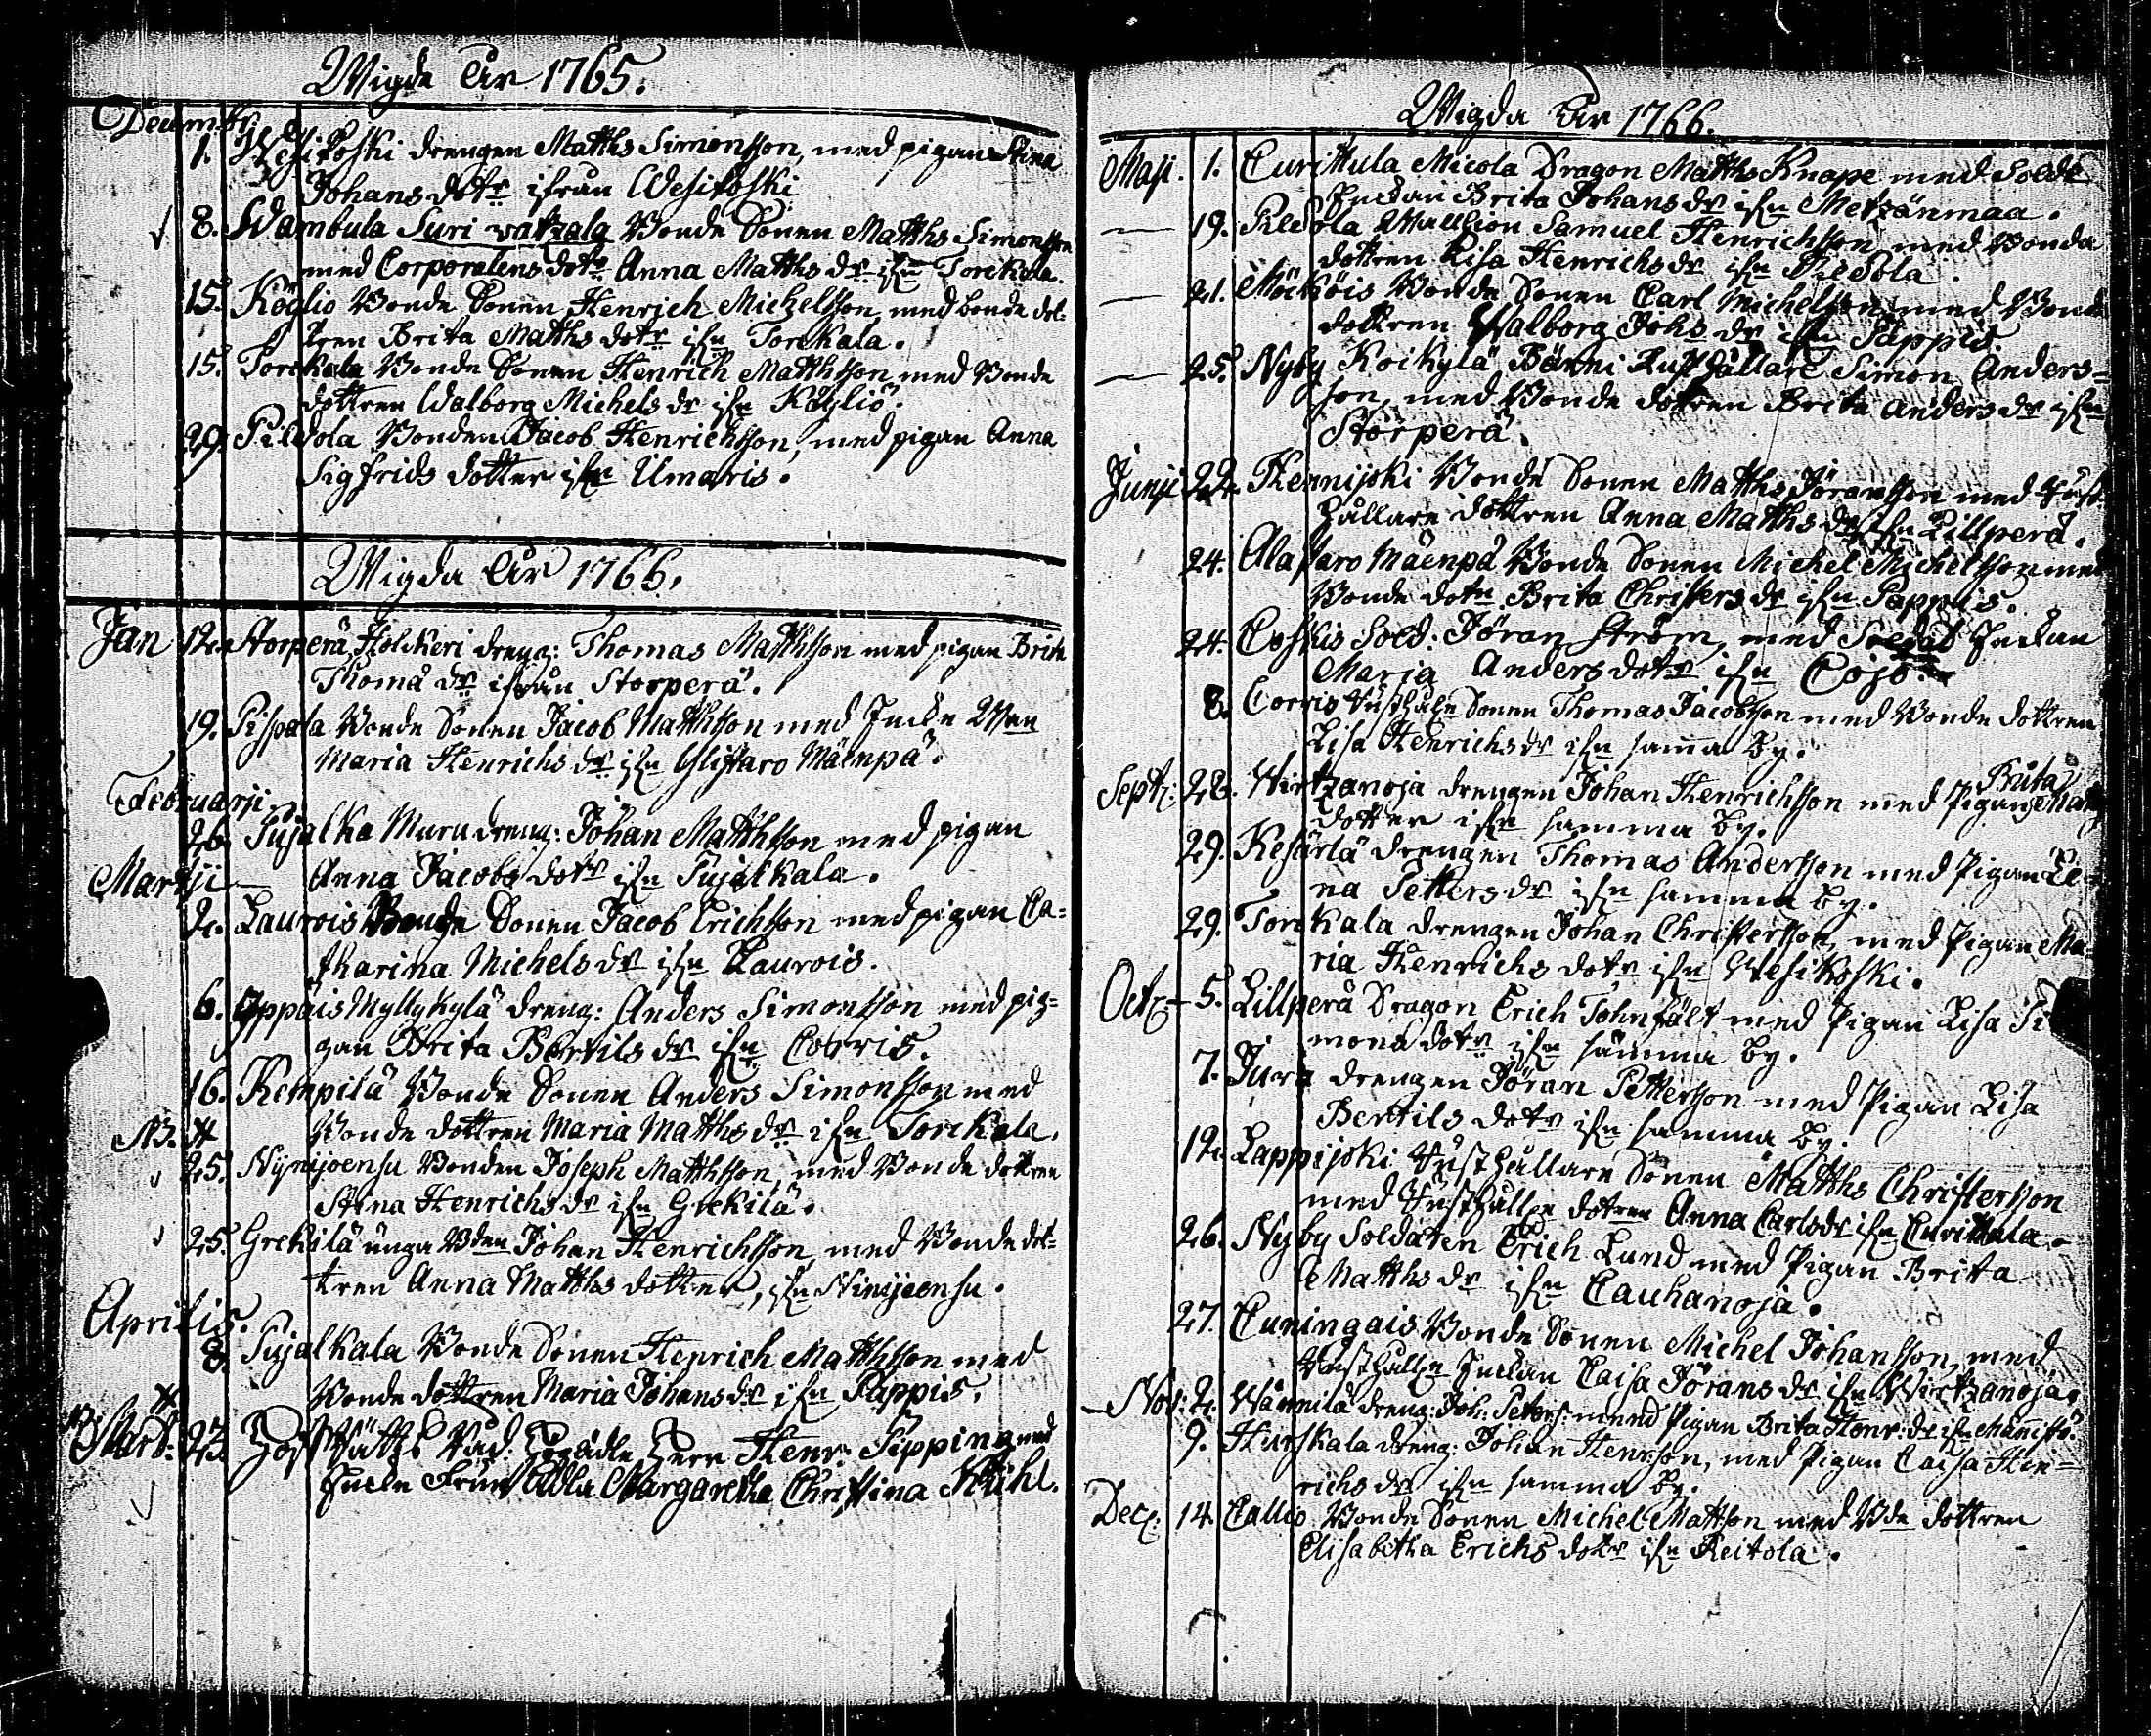 Wigde År 1765.
Decembr:
1. Wesikoski drengen Matths Simonsson, med pigan Stina
Johans dotr ifrån Wesikoski
8. Wambula Suri vatzala Bonde Sonen Matths Simonsson
med Corporalens dotr Anna Matths dr ifn Torckala.
15. Köglio Bonde Sonen Henrich Michelsson med bonde dot-
tren Brita Matths dotr ifn Torckala.
15. Torckala Bonde Sonen Henrich Matthsson med Bonde
dottren Walborg Michels dr ifn Köyliö.
29. Pildola Bonden Jacob Henrichsson, med pigan Anna
Sigfrids dotter ifn Ilmaris.
Wigda År 1766.
Jan 12. Storperä Hölckeri dreng: Thomas Matthsson med pigan Brita
Thomæ dr ifrån Storperä.
19. Pispala Bonde Sonen Jacob Matthsson med Enckn
Maria Henrichs dr ifn Mäenpä.
Februarji
26. Pujalka Muru dreng: Johan Matthsson med pigan
Anna Jacobs dotr ifn Pujalkala.
Martji
2. Laurois Bonde Sonen Jacob Erichsson med pigan Ca-
tharina Michels dr ifn Laurois.
6. Yppäis Myllykylä dreng: Anders Simonsson med pig-
gan Brita Bertils dr ifn Corris.
16. Kempilä Bonde Sonen Anders Simonsson med
Bonde dottren Maria Matths dr ifn Torckala.
NB.
25. Nijnijoensu Bonden Joseph Matthsson, med Bonde dottren
Stina Henrichs dr ifn Grekilä.
25. Grekilä unga Bden Johan Henrichsson, med Bonde dot-
tren Anna Matths dotter, ifn Ninijoensu.
Aprilis.
8. Pujalkala Bonde Sonen Henrich Matthsson med
Bonde dottren Maria Johans dr ifn Pappis.
Mart: Hof Rätts Råd. Högädle Herr Henr: Sipping med
Enckn Fru Adla Margaretha Christina Ståhl.
Wigda År 1766.
Maji. 1. Curittula Micola Dragon Matths Knape med Soldt
Enckan Brita Johans dr ifn Metzänmaa.
19. Pildola Samuel Henrichsson med Bonda
dottren Lisa Henrichs dr ifn Pildola.
21. Möcköis Bonde Sonen Carl Michelsson med Bonde
dottren Walborg Johs dr ifn Pappis.
25. Nyby Koikylä Bänni Rusthållare Simon Anders-
son, med Bonde dottren Brita Anders dr ifn
Storperä.
Junji 22. Hennijoki Bonde Sonen Matths Jöransson med Rust-
hållare dottren Anna Matths dr ifn Lillperä.
24. Alastaro Mäenpä Bonde Sonen Michel Michelsson med
Bonde dotn Brita Christers dr ifn Pappis.
24. Coskis Sold: Jöran Ström, med Soldat Enckan
Marja Anders dotr ifn Cojo.
8. Corris Rusthålln Sonen Thomas Jacobsson med Bonde dottren
Lisa Henrichs dr ifn samma by.
Septr: 28. Wirtzanoja drengen Johan Henrichsson med Pigan Brita Matths
dotter ifn samma by.
29. Kesärlä drengen Thomas Andersson med Pigan Le-
na Petters dr ifn samma by.
29. Torckala drengen Johan Christersson, med Pigan Ma-
ria Henrichs dotr ifn Wesikoski.
Octr: 5. Lillperä Dragon Erich Tohnfält med Pigan Lisa Si
mons dotr ifn samma by.
7. Jura drengen Jöran Pettersson med Pigan Lisa
Bertils dotr ifn samma by.
12. Lappijoki Rusthållare Sonen Matths Christersson
med Rusthålln dotren Anna Carls dr ifn Curittula.
26. Nyby Soldaten Erich Lund med Pigan Brita
Matths dr ifn Cauhanoja.
27. Cuningais Bonde Sonen Michel Johansson, med
Rusthålln Enckan Caisa Jörans dr ifn Wirtzanoja.
Nov: 2. Wännilä dreng: Joh: Peters: med Pigan Brita Henr: dr ifn Mannistö.
9. Hirskala dreng: Johan Henrsson, med Pigan Caisa Hen-
richs dr ifn samma by.
Decr: 14. Callio Bonde Sonen Michel Mattsson med Bde dottren
Elisabetha Erichs dotr ifn Keitola.